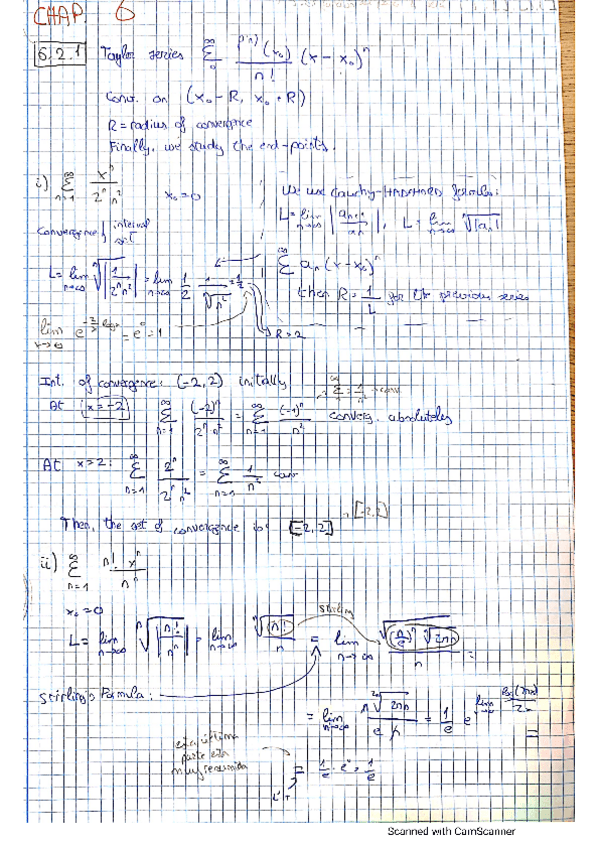 CHAP. 6
6.2.1 Taylor series ∑_0^∞ f^(n)(x₀)/n! (x - x₀)^n
Conv. on (x₀-R, x₀+R)
R = radius of convergence
Finally, we study the end-points.
i) ∑_{n=1}^∞ x^n/(2^n n^2) x₀=0
Convergence interval set
We use Cauchy-HADAMARD formula:
L = lim_{n→∞} |a_{n+1}/a_n|, L = lim_{n→∞} ⁿ√|a_n|
∑^∞ a_n (x-x₀)^n
then R = 1/L for the previous series
L = lim_{n→∞} ⁿ√|1/(2^n n^2)| = lim_{n→∞} 1/2 1/ⁿ√n² = 1/2
R=2
= e^0 = 1
Int. of convergence: (-2,2) initially
At x=-2 ∑_{n=1}^∞ (-2)^n/(2^n n^2) = ∑_{n=1}^∞ (-1)^n/n^2 converg. absolutely
At x=2: ∑_{n=1}^∞ 2^n/(2^n n^2) = ∑_{n=1}^∞ 1/n^2 conv
Then, the set of convergence is: [-2,2]
ii) ∑_{n=1}^∞ n! x^n/n^n
x₀=0
stirling
L = lim_{n→∞} ⁿ√|n!/n^n| = lim_{n→∞} ⁿ√(n!)/n = lim_{n→∞} ⁿ√((n/e)^n √(2πn))/n =
Stirling's Formula:
= lim_{n→∞} n ²ⁿ√(2πn)/(e n) = 1/e e^{lim log(2πn)/2n} =
esta última
parte está
muy resumida
= 1/e · e^0 = 1/e
L'H
Scanned with CamScanner